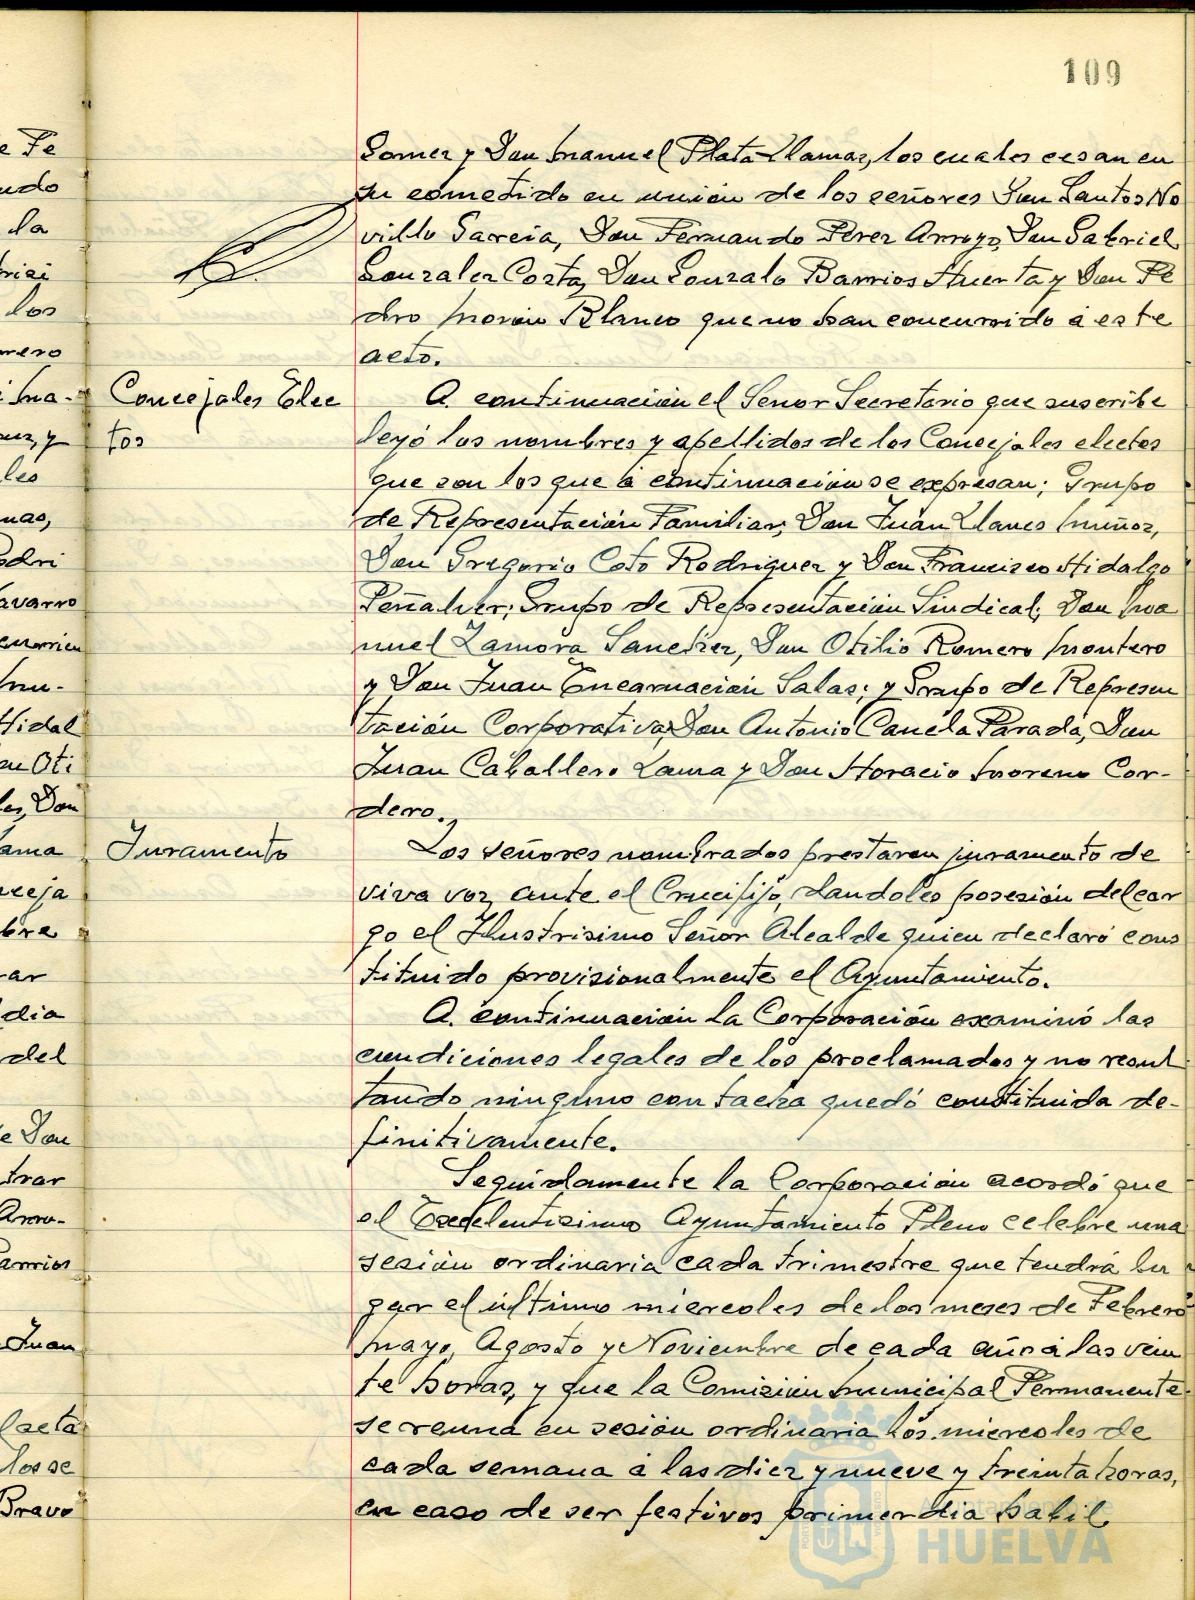 109
Gomez y Don Manuel Plata Llamas, los cuales cesan en
su cometido en unión de los señores Don Santos No
villo Garcia, Don Fernando Perez Arroyo, Don Gabriel
Gonzalez Costa, Don Gonzalo Barrios Huerta y Don Pe
dro Morón Blanco que no han concurrido á este
acto.
Concejales Elec
tos
A continuación el Señor Secretario que suscribe
leyó los nombres y apellidos de los Concejales electos
que son los que á continuación se expresan; Grupo
de Representación Familiar, Don Juan Llanes Muñoz,
Don Gregorio Coto Rodriguez y Don Francisco Hidalgo
Peñalver; Grupo de Representación Sindical; Don Ma
nuel Zamora Sanchez, Don Otilio Romero Montero
y Don Juan Encarnación Salas; y Grupo de Represen
tación Corporativa, Don Antonio Canela Parada, Don
Juan Caballero Lama y Don Horacio Moreno Cor-
dero.
Juramento
Los señores nombrados prestaron juramento de
viva voz ante el Crucifijo, dandoles posesión del car
go el Ilustrisimo Señor Alcalde quien declaró cons
tituido provisionalmente el Ayuntamiento.
A continuación la Corporación examinó las
condiciones legales de los proclamados y no resul
tando ninguno con tacha quedó constituida de-
finitivamente.
Seguidamente la Corporación acordó que
el Excelentisimo Ayuntamiento Pleno celebre una
sesión ordinaria cada trimestre que tendrá lu
gar el último miercoles de los meses de Febrero
Mayo, Agosto y Noviembre de cada año á las vein
te horas, y que la Comisión Municipal Permanente
se reuna en sesión ordinaria los miercoles de
cada semana á las diez y nueve y treinta horas,
en caso de ser festivos primer dia habil
Ayuntamiento de
HUELVA